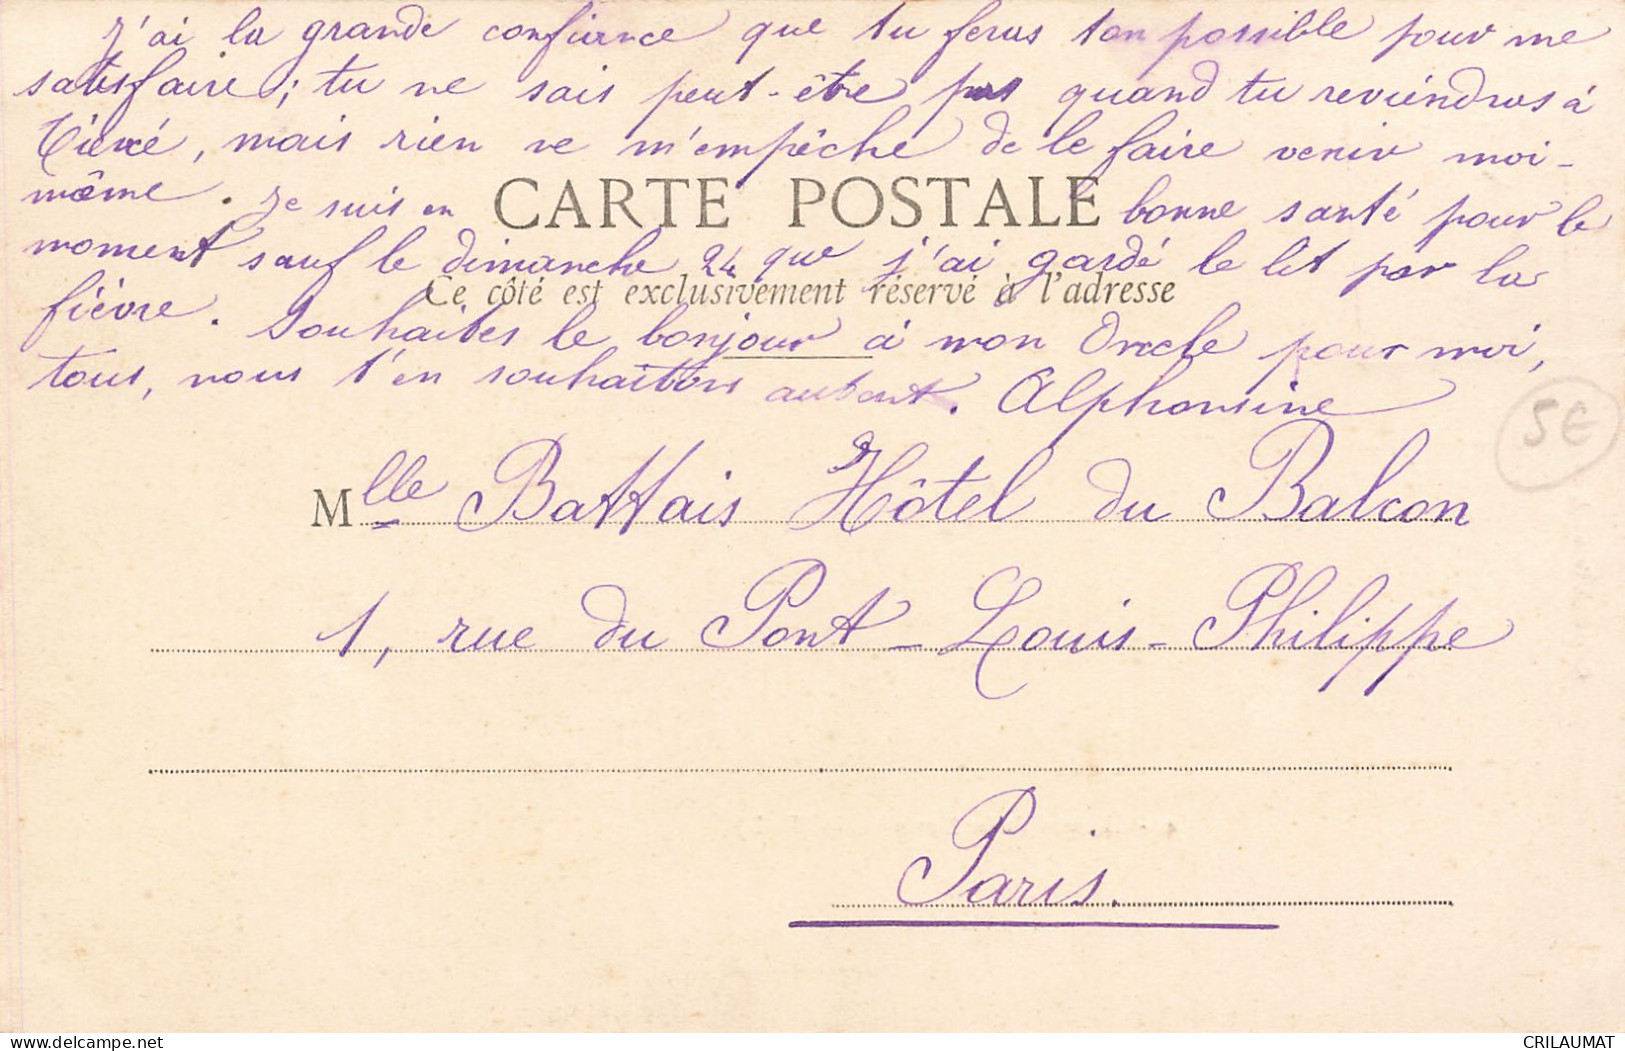 J'ai la grande confiance que tu feras ton possible pour me
satisfaire ; tu ne sais peut-être pas quand tu reviendras à
mais rien ne m'empêche de le faire venir moi-
même. Je suis en bonne santé pour le
CARTE POSTALE
moment sauf le dimanche 24 que j'ai gardé le lit par la
Ce côté est exclusivement réservé à l'adresse
fièvre. Souhaites le bonjour à mon Oncle pour moi,
tous, nous t'en souhaitons autant. Alphonsine
5€
Mlle Battais Hôtel du Balcon
1, rue du Pont-Louis-Philippe
Paris.
delcampe.net
CRILAUMAT